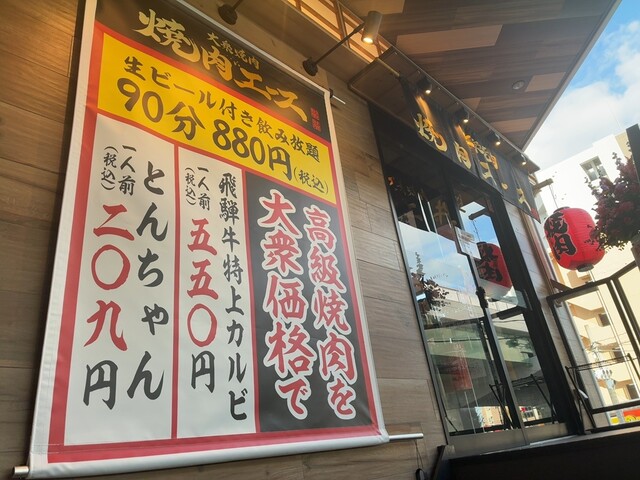 大衆焼肉
焼肉エース
生ビール付き飲み放題
90分 880円(税込)
高級焼肉を
大衆価格で
飛騨牛特上カルビ
一人前(税込) 五五〇円
とんちゃん
一人前(税込) 二〇九円
焼肉エース
焼肉